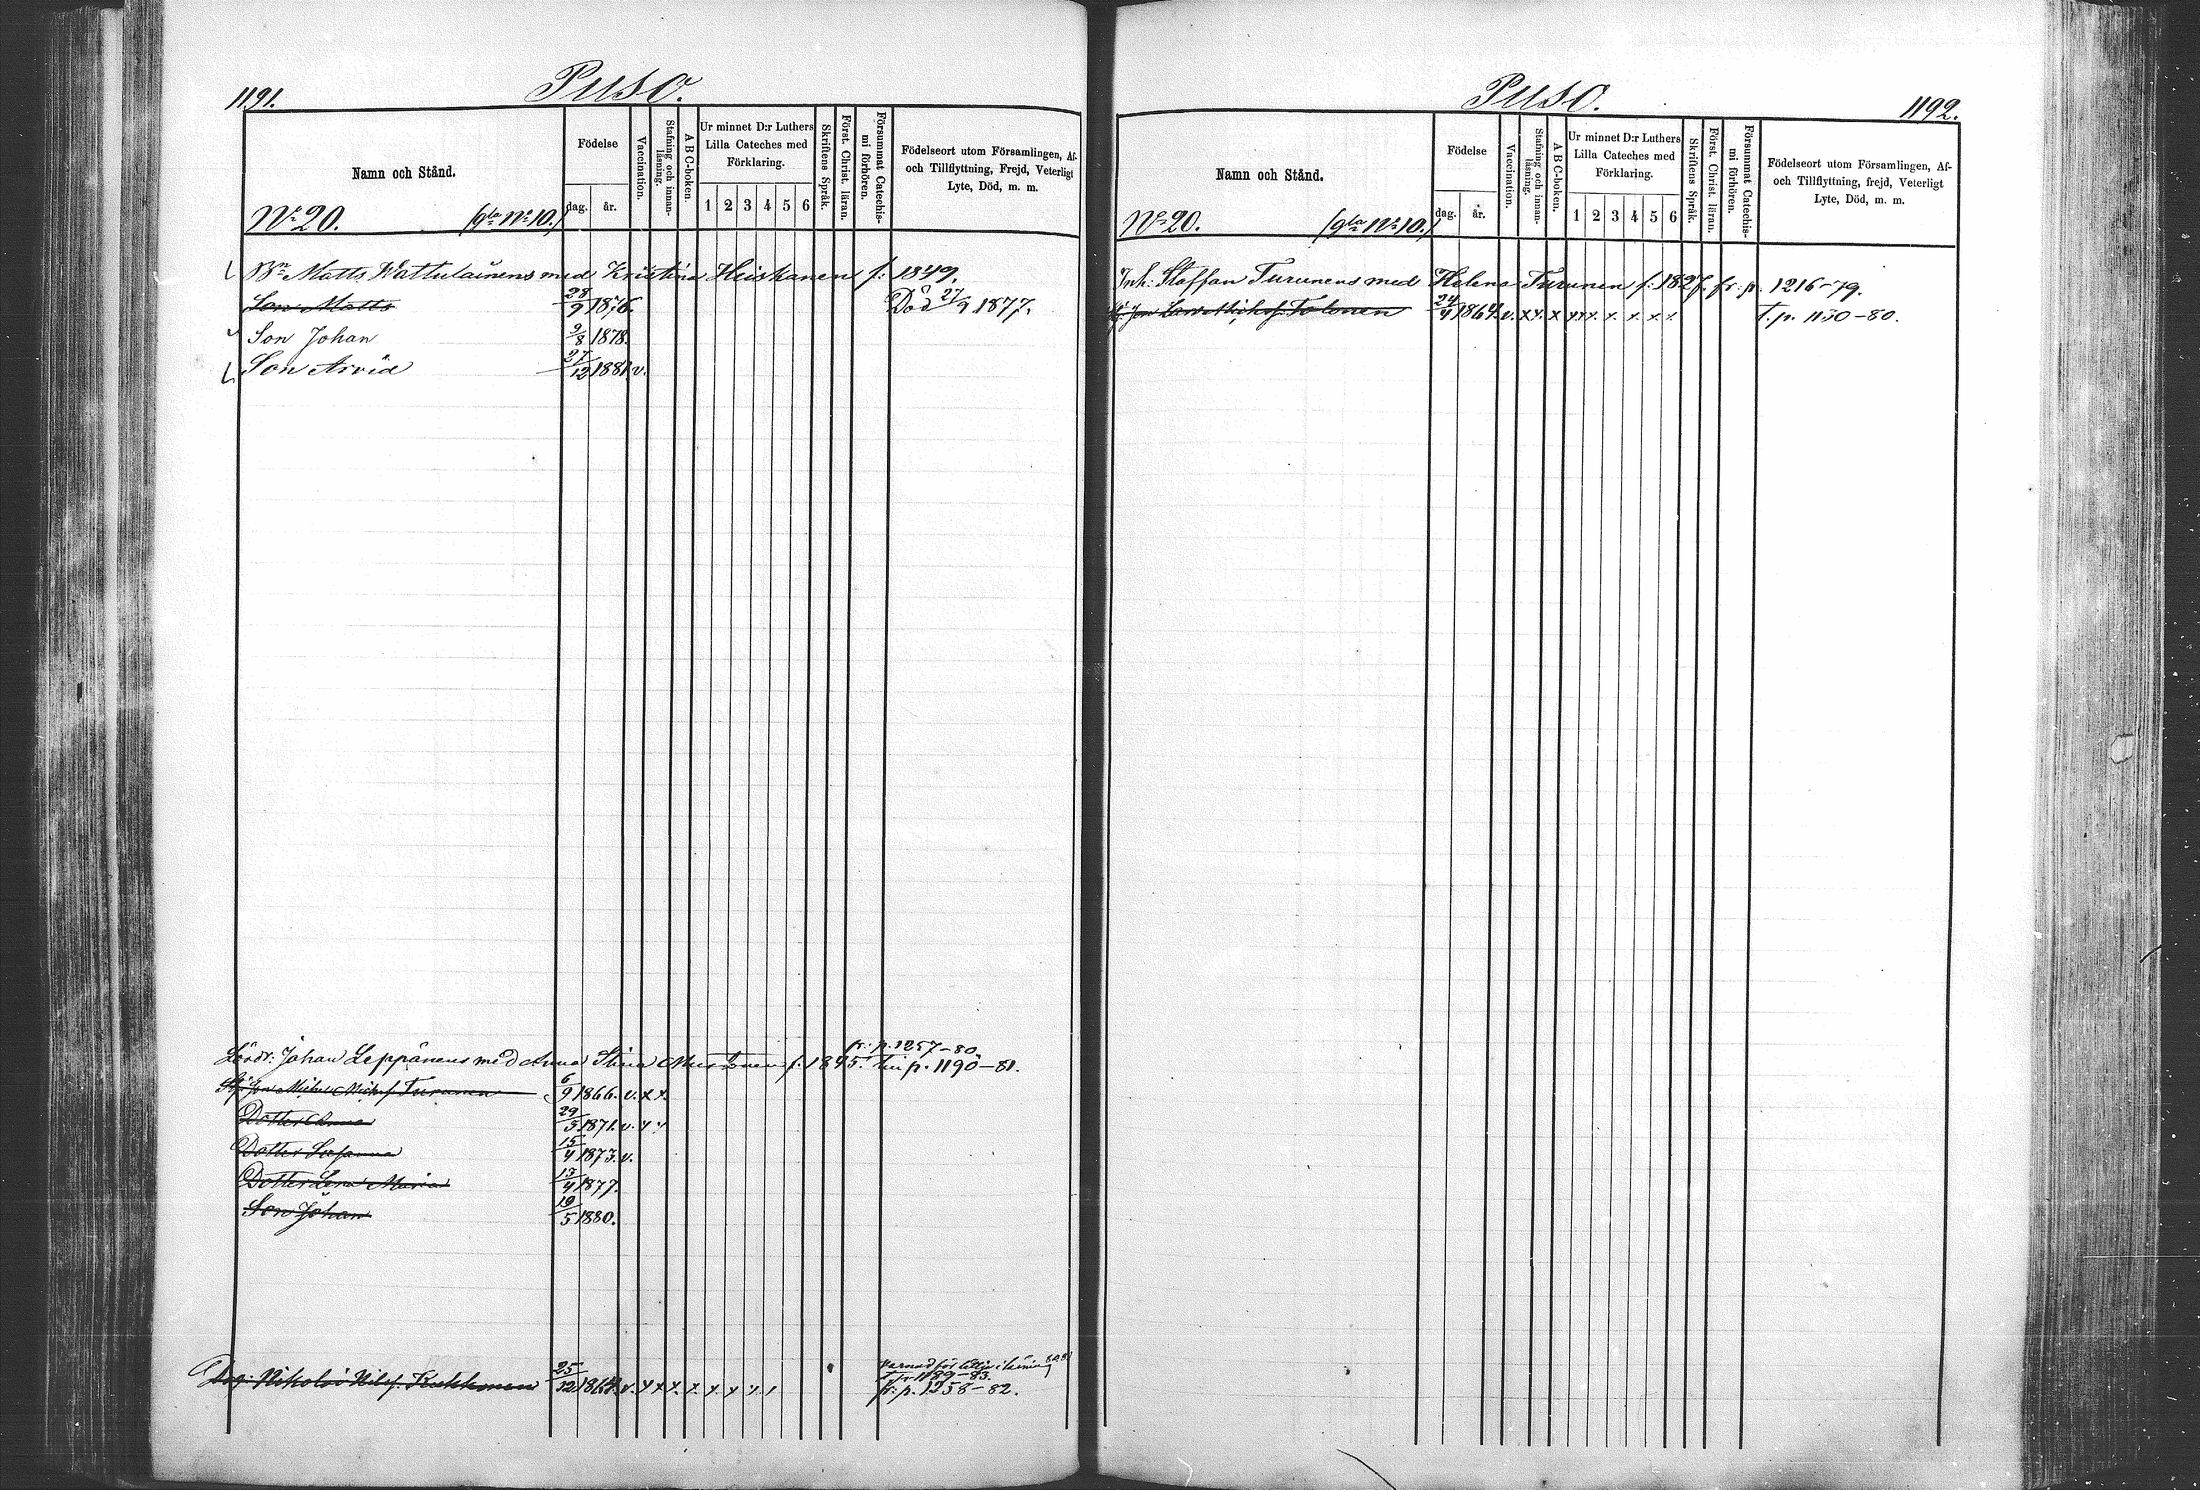 1191.
Puso.
Namn och Stånd.
Födelse
dag.
år.
Vaccination.
Stafning och innan-
läsning.
ABC-boken.
Ur minnet D:r Luthers
Lilla Cateches med
Förklaring.
1 2 3 4 5 6
Skriftens Språk.
Först. Christ. läran.
Försummat Catechis-
mi förhören.
Födelseort utom Församlingen, Af-
och Tillflyttning, Frejd, Veterligt
Lyte, Död, m. m.
No 20. (gla No 10.)
Bn Matts Wattulainens med Kristina Heiskanen f: 1849.
Son Matts 28/9 1876. Död 27/9 1877.
Son Johan 9/8 1878.
Son Arvid 27/12 1881. v.
fr: p. 1257-80.
Johan Leppänens med Anna Stina f: 1845. p. 1190-81.
Michs. Turunen 6/9 1866. v. x x.
Dotter Anna 29/5 1871. v. x x
Dotter Susanna 15/4 1873. v.
Dotter Lena Maria 13/4 1877.
Son Johan 19/5 1880.
1189-83.
Nikolai Nilsf. Kukkonen 25/12 1864. v. x x x. x. x x x. fr: p. 1258-82.
Puso.
1192.
Namn och Stånd.
Födelse
dag.
år.
Vaccination.
Stafning och innan-
läsning.
ABC-boken.
Ur minnet D:r Luthers
Lilla Cateches med
Förklaring.
1 2 3 4 5 6
Skriftens Språk.
Först. Christ. läran.
Försummat Catechis-
mi förhören.
Födelseort utom Församlingen, Af-
och Tillflyttning, frejd, Veterligt
Lyte, Död, m. m.
No 20. (gla No 10.)
Inh: Staffan Turunens med Helena Turunen f: 1827. fr: p. 1216-79.
Lars Michsf. Tolonen 24/4 1864. v. x x. x x x x. x. x. x. x. t. p. 1150-80.